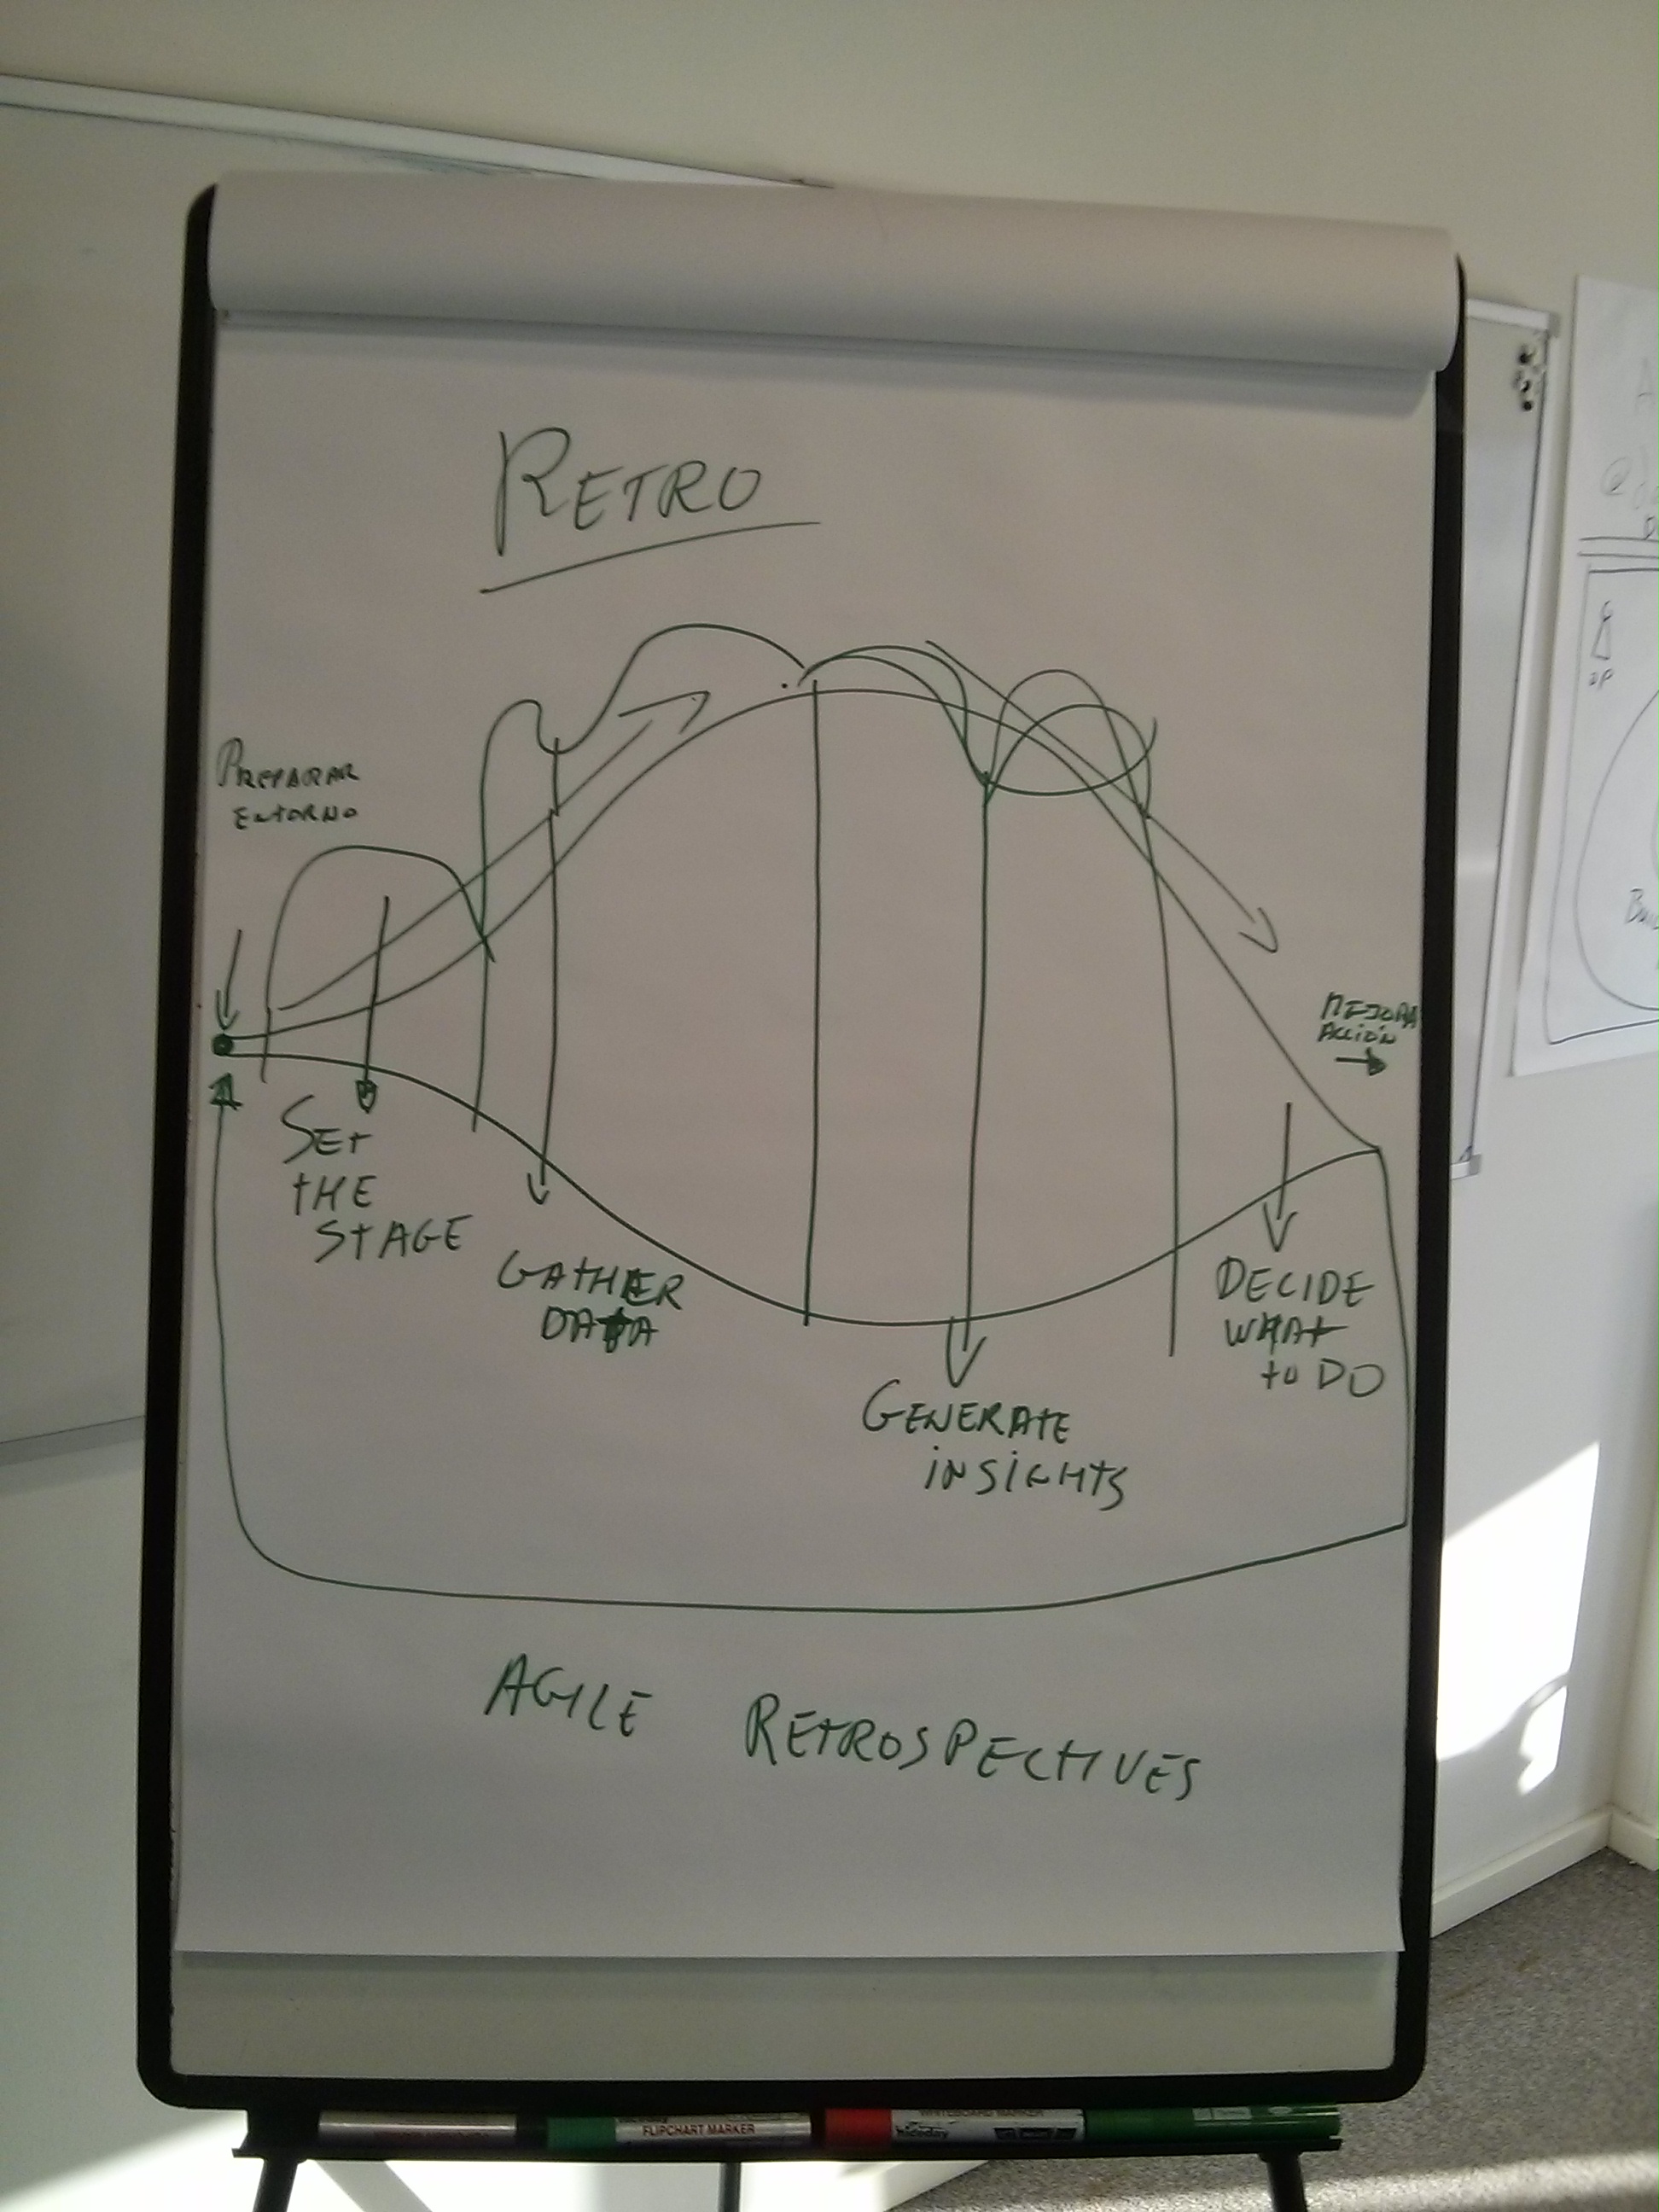 RETRO
PREPARAR
ENTORNO
MEJORA
ACCIÓN
SET
THE
STAGE
GATHER
DATA
GENERATE
INSIGHTS
DECIDE
WHAT
TO DO
AGILE RETROSPECTIVES
FLIPCHART MARKER
WHITEBOARD MARKER